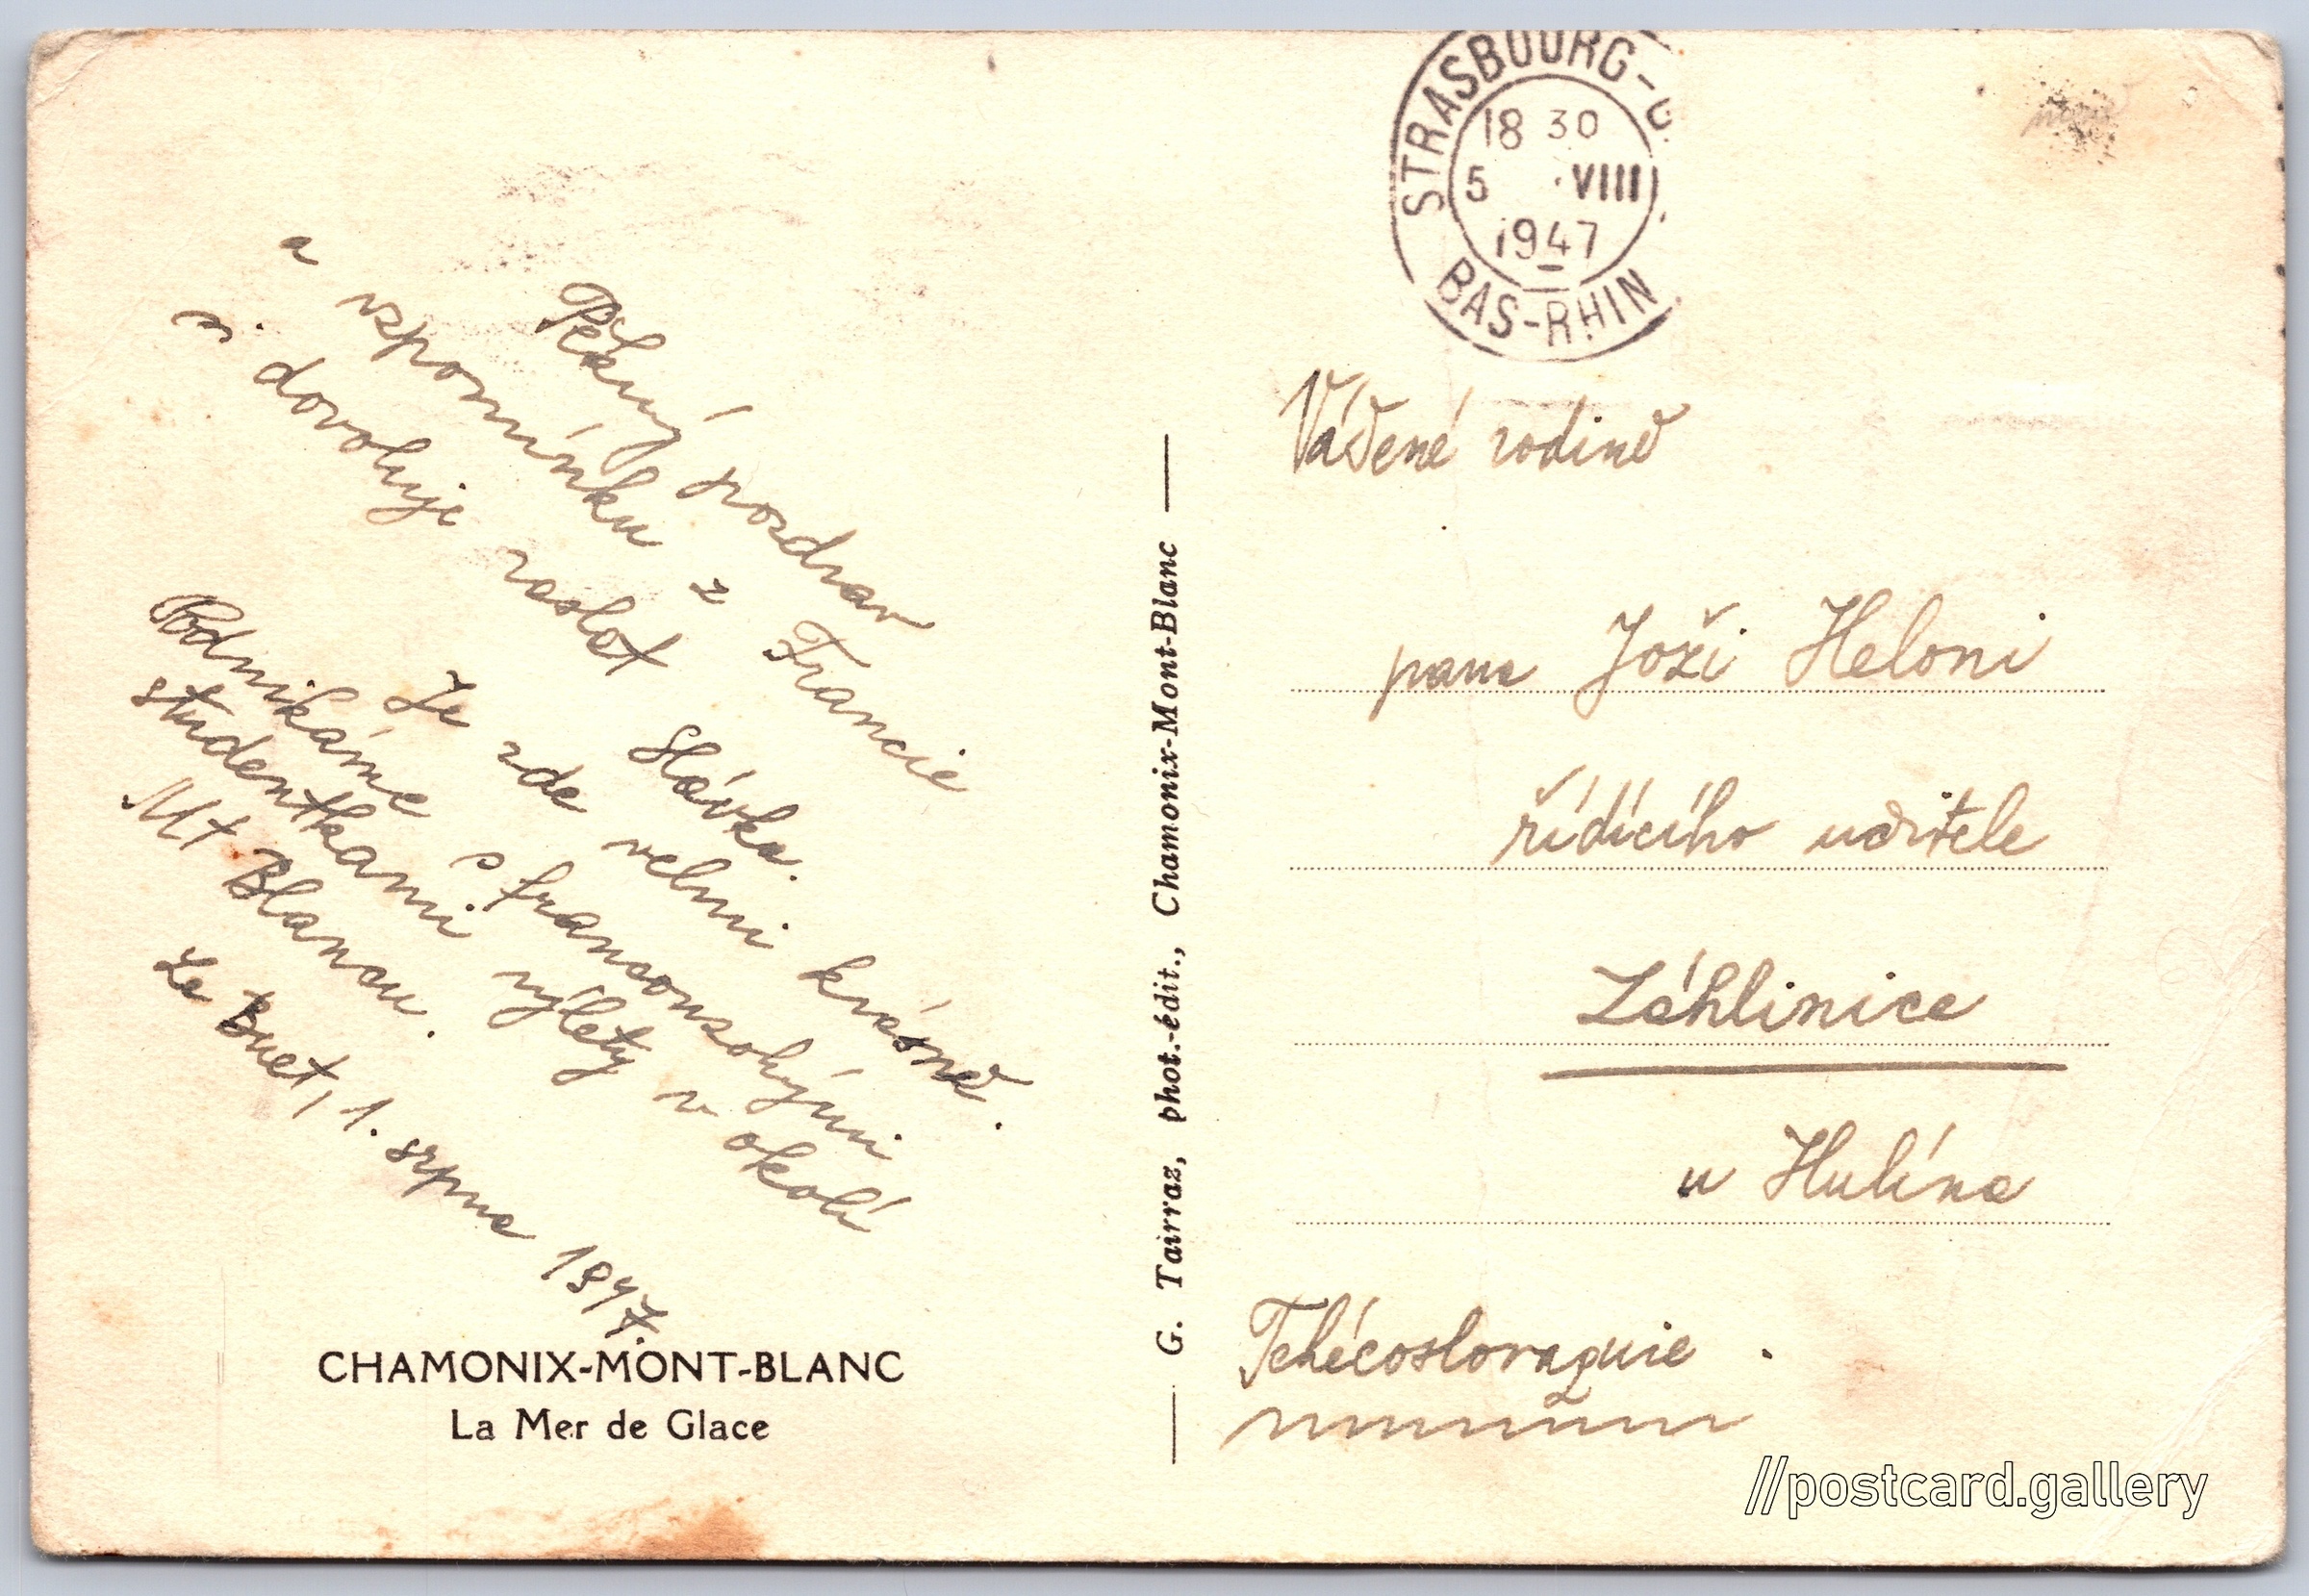 STRASBOURG-G
18 30
5 VIII
1947
BAS-RHIN
Pěkný pozdrav
a vzpomínku z Francie
si dovoluje zaslat
Slávka.
Je zde velmi krásně.
Podnikáme s francouzskými
studentkami výlety v okolí
Mt Blancu.
Le Buet, 1. srpna 1947.
CHAMONIX-MONT-BLANC
La Mer de Glace
G. Tairraz, phot.-édit., Chamonix-Mont-Blanc
Vážené rodině
pana Joži Heloni
řídícího učitele
Záhlinice
u Hulína
Tchécoslovaquie.
//postcard.gallery